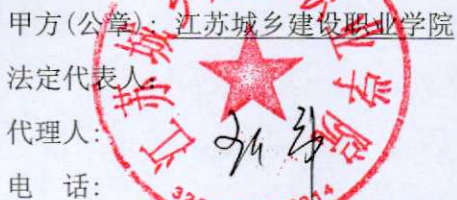 甲方(公章)：江苏城乡建设职业学院
法定代表人：
代理人：
电 话：